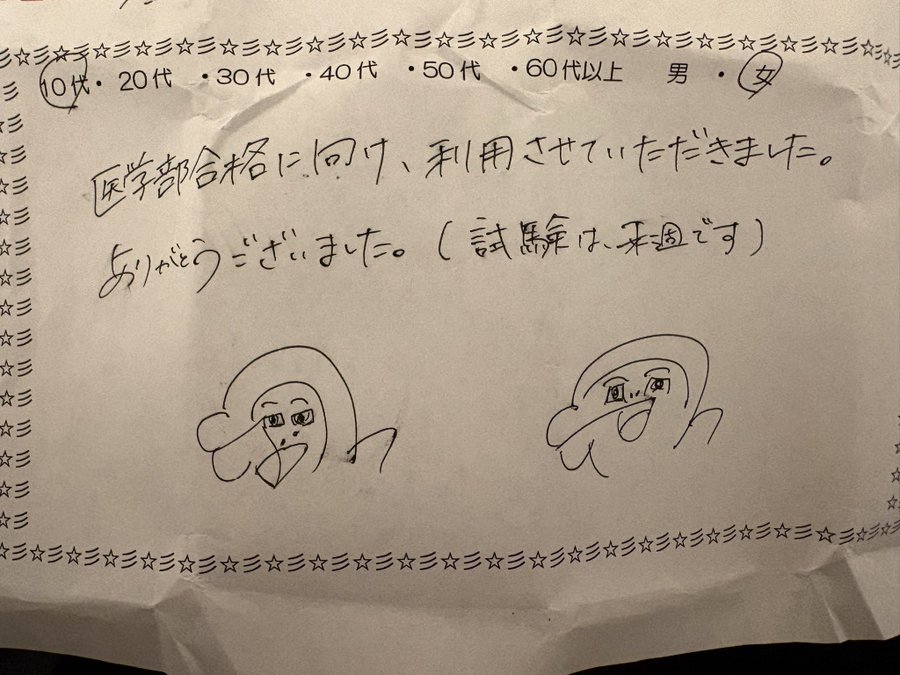 10代・20代・30代・40代・50代・60代以上 男・女
医学部合格に向け、利用させていただきました。
ありがとうございました。(試験は、来週です)